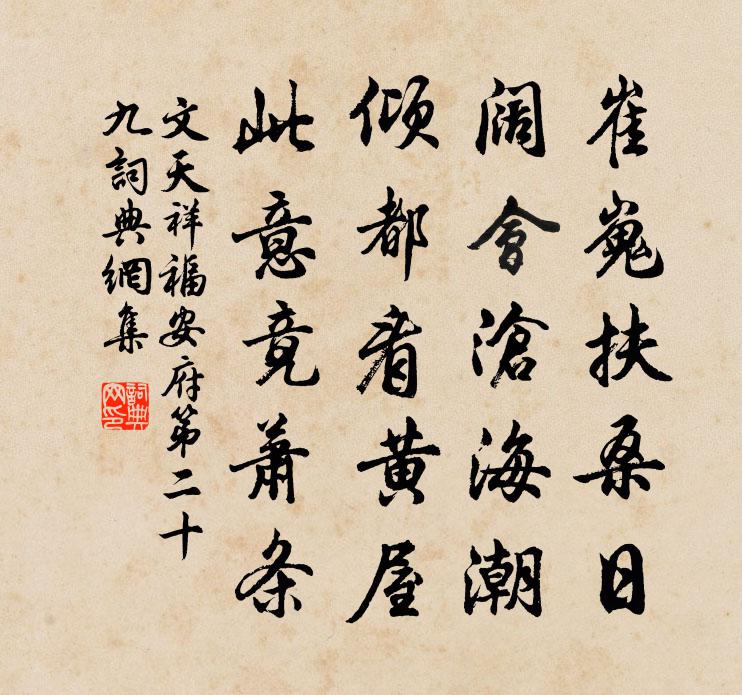 崔嵬扶桑日
阔會滄海潮
倾都看黄屋
此意竟蕭条
文天祥福安府第二十
九詞典網集
詞典
网印